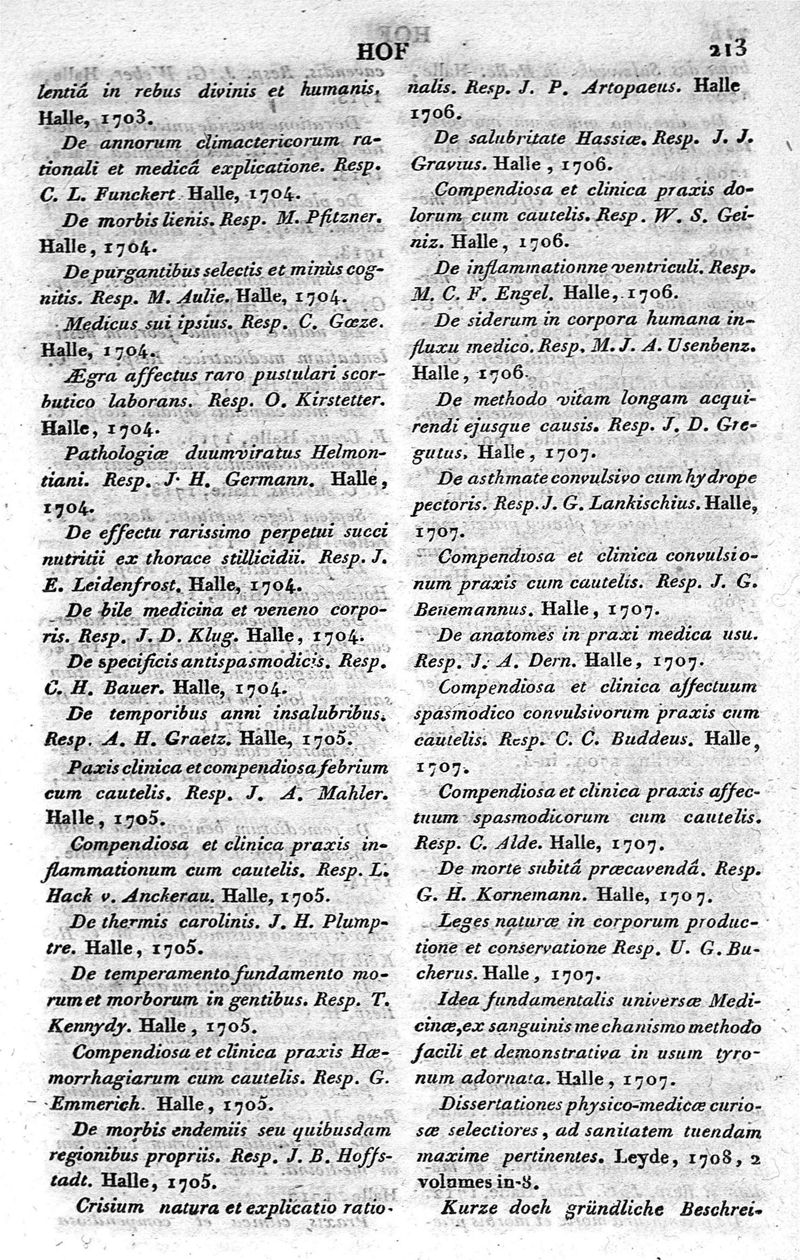 HOF
213
lentiâ in rebus divinis et humanis.
Halle, 1703.
De annorum climactericorum ra-
tionali et medicâ explicatione. Resp.
C. L. Funckert Halle, 1704.
De morbis lienis. Resp. M. Pfitzner.
Halle, 1704.
De purgantibus selectis et minùs cog-
nitis. Resp. M. Aulie. Halle, 1704.
Medicus sui ipsius. Resp. C. Gœze.
Halle, 1704.
Ægra affectus raro pustulari scor-
butico laborans. Resp. O. Kirstetter.
Halle, 1704.
Pathologiæ duumviratus Helmon-
tiani. Resp. J. H. Germann. Halle,
1704.
De effectu rarissimo perpetui succi
nutritii ex thorace stillicidii. Resp. J.
E. Leidenfrost. Halle, 1704.
De bile medicina et veneno corpo-
ris. Resp. J. D. Klug. Halle, 1704.
De specificis antispasmodicis. Resp.
C. H. Bauer. Halle, 1704.
De temporibus anni insalubribus.
Resp. A. H. Graetz. Halle, 1705.
Paxis clinica et compendiosa febrium
cum cautelis. Resp. J. A. Mahler.
Halle, 1705.
Compendiosa et clinica praxis in-
flammationum cum cautelis. Resp. L.
Hack v. Anckerau. Halle, 1705.
De thermis carolinis. J. H. Plump-
tre. Halle, 1705.
De temperamento fundamento mo-
rum et morborum in gentibus. Resp. T.
Kennydy. Halle, 1705.
Compendiosa et clinica praxis Hæ-
morrhagiarum cum cautelis. Resp. G.
Emmerich. Halle, 1705.
De morbis endemiis seu quibusdam
regionibus propriis. Resp. J. B. Hoffs-
tadt. Halle, 1705.
Crisium natura et explicatio ratio-
nalis. Resp. J. P. Artopaeus. Halle
1706.
De salubritate Hassiæ. Resp. J. J.
Gravius. Halle, 1706.
Compendiosa et clinica praxis do-
lorum cum cautelis. Resp. W. S. Gei-
niz. Halle, 1706.
De inflammationne ventriculi. Resp.
M. C. F. Engel. Halle, 1706.
De siderum in corpora humana in-
fluxu medico. Resp. M. J. A. Usenbenz.
Halle, 1706.
De methodo vitam longam acqui-
rendi ejusque causis. Resp. J. D. Gre-
gutus. Halle, 1707.
De asthmate convulsivo cum hydrope
pectoris. Resp. J. G. Lankischius. Halle,
1707.
Compendiosa et clinica convulsio-
num praxis cum cautelis. Resp. J. G.
Benemannus. Halle, 1707.
De anatomes in praxi medica usu.
Resp. J. A. Dern. Halle, 1707.
Compendiosa et clinica affectuum
spasmodico convulsivorum praxis cum
cautelis. Resp. C. C. Buddeus. Halle,
1707.
Compendiosa et clinica praxis affec-
tuum spasmodicorum cum cautelis.
Resp. C. Alde. Halle, 1707.
De morte subitâ præcavendâ. Resp.
G. H. Kornemann. Halle, 1707.
Leges naturæ in corporum produc-
tione et conservatione Resp. U. G. Bu-
cherus. Halle, 1707.
Idea fundamentalis universæ Medi-
cinæ, ex sanguinis mechanismo methodo
facili et demonstrativa in usum tyro-
num adornata. Halle, 1707.
Dissertationes physico-medicæ curio-
sæ selectiores, ad sanitatem tuendam
maxime pertinentes. Leyde, 1708, 2
volumes in-8.
Kurze doch gründliche Beschrei-